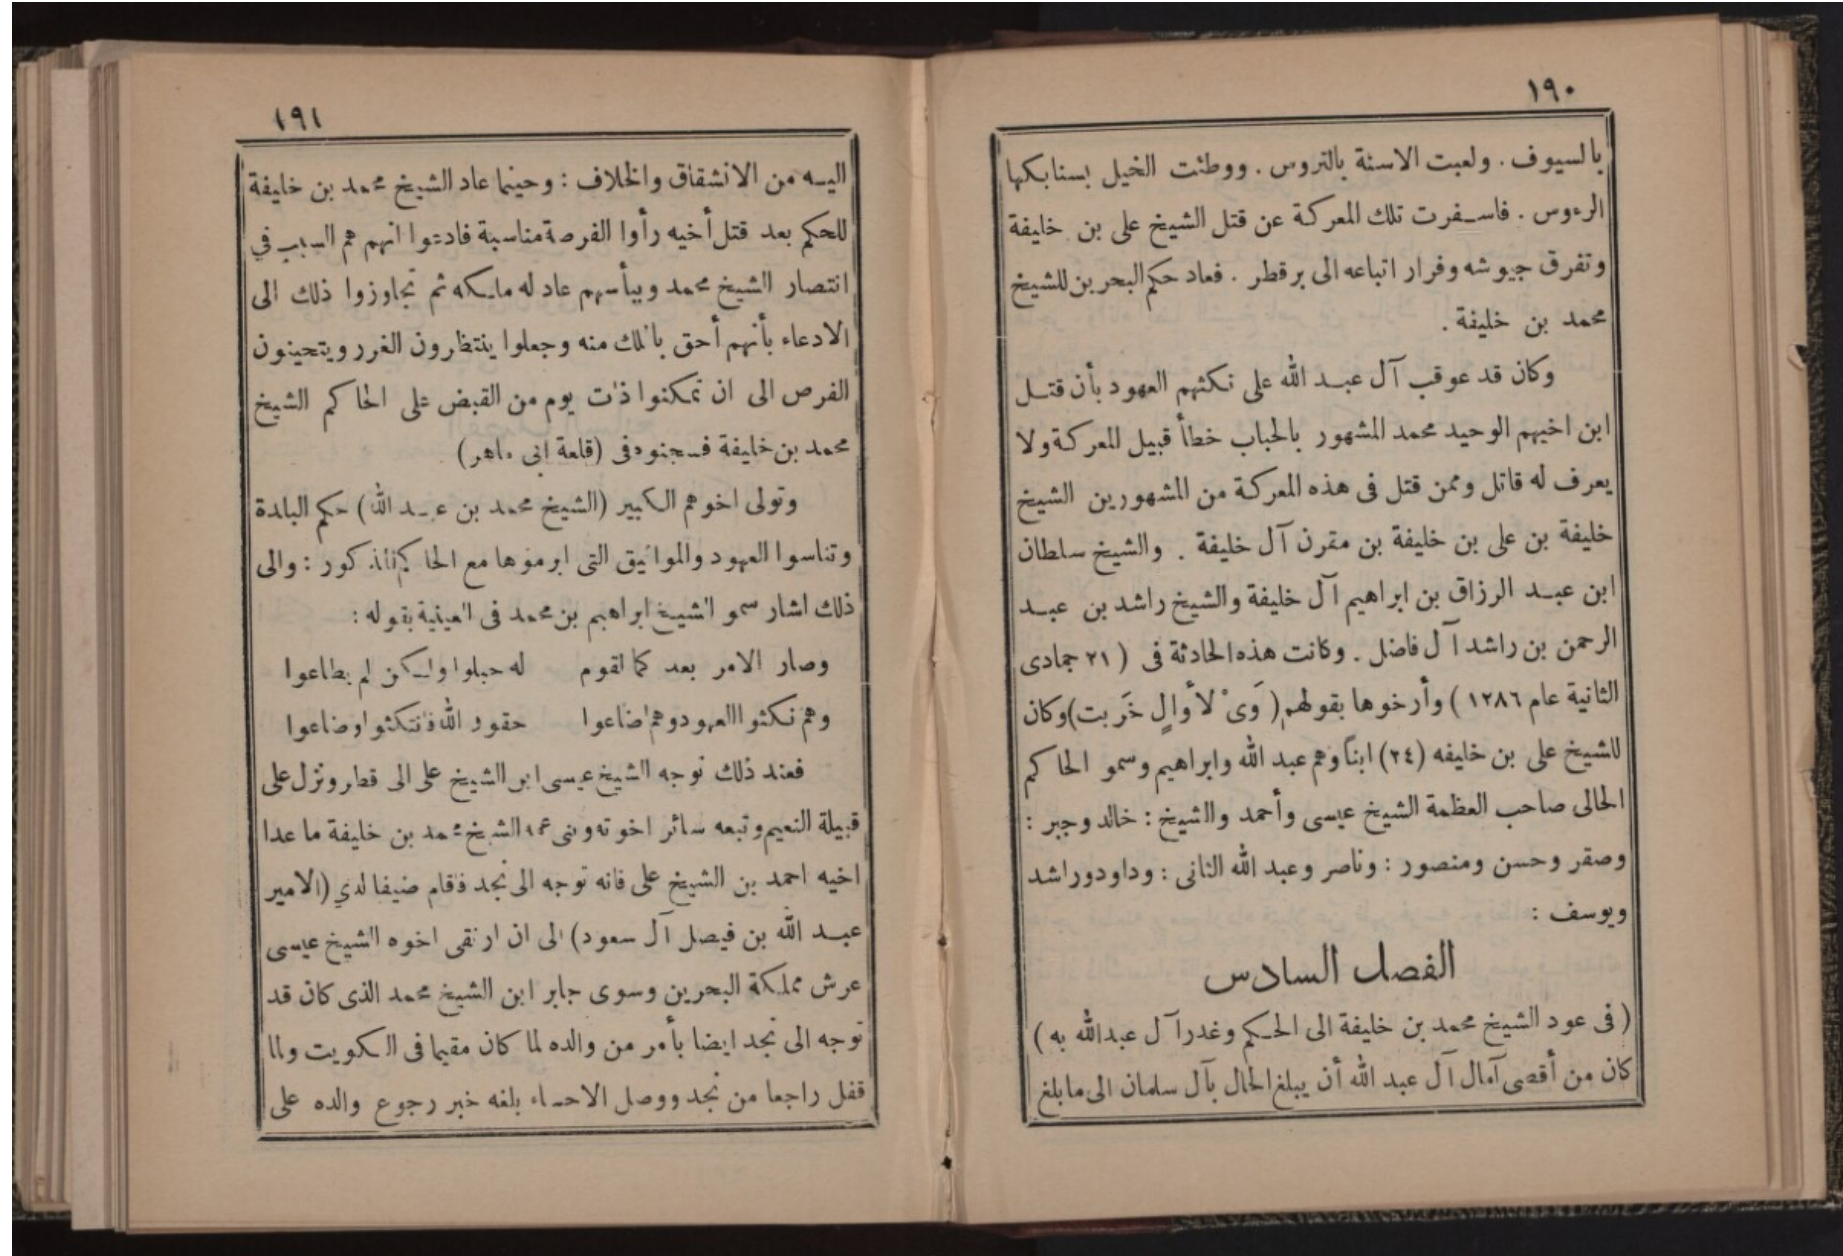 ١٩٠
بالسيوف . ولعبت الاسنة بالتروس . ووطئت الخيل بسنابكها
الرءوس . فاسفرت تلك المعركة عن قتل الشيخ على بن خليفة
وتفرق جيوشه وفرار اتباعه الى بر قطر . فعاد حكم البحرين للشيخ
محمد بن خليفة .
وكان قد عوقب آل عبد الله على نكثهم العهود بأن قتل
ابن اخيهم الوحيد محمد المشهور بالحباب خطأ قبيل المعركة ولا
يعرف له قاتل وممن قتل فى هذه المعركة من المشهورين الشيخ
خليفة بن على بن خليفة بن مقرن آل خليفة . والشيخ سلطان
ابن عبد الرزاق بن ابراهيم آل خليفة والشيخ راشد بن عبد
الرحمن بن راشد آل فاضل . وكانت هذه الحادثة فى ( ٢١ جمادى
الثانية عام ١٢٨٦ ) وأرخوها بقولهم ( وَىْ لأَوالٍ خَربت ) وكان
للشيخ على بن خليفه (٢٤) ابناً وهم عبد الله وابراهيم وسمو الحاكم
الحالى صاحب العظمة الشيخ عيسى وأحمد والشيخ : خالد وجبر :
وصقر وحسن ومنصور : وناصر وعبد الله الثانى : وداود وراشد
ويوسف :
الفصل السادس
( فى عود الشيخ محمد بن خليفة الى الحكم وغدر آل عبدالله به )
كان من أقصى آمال آل عبد الله أن يبلغ الحال بآل سلمان الى ما بلغ
١٩١
اليه من الانشقاق والخلاف : وحينما عاد الشيخ محمد بن خليفة
للحكم بعد قتل أخيه رأوا الفرصة مناسبة فادعوا انهم هم السبب في
انتصار الشيخ محمد وبيأسهم عاد له ملكه ثم تجاوزوا ذلك الى
الادعاء بأنهم أحق بالملك منه وجعلوا ينتظرون الغرر ويتحينون
الفرص الى ان تمكنوا ذات يوم من القبض على الحاكم الشيخ
محمد بن خليفة فسجنوه فى (قلعة ابى ماهر)
وتولى اخوهم الكبير (الشيخ محمد بن عبد الله) حكم البلدة
وتناسوا العهود والمواثيق التى ابرموها مع الحاكم المذكور : والى
ذلك اشار سمو الشيخ ابراهيم بن محمد فى العينية بقوله :
وصار الامر بعد كما لقوم له حبلوا ولكن لم يطاعوا
وهم نكثوا العهود وهم اضاعوا حقود الله فانتكثوا وضاعوا
فعند ذلك توجه الشيخ عيسى ابن الشيخ على الى قطر ونزل على
قبيلة النعيم وتبعه سائر اخوته وبنى عمه الشيخ محمد بن خليفة ما عدا
اخيه احمد بن الشيخ على فانه توجه الى نجد فاقام ضيفا لدي (الامير
عبد الله بن فيصل آل سعود) الى ان ارتقى اخوه الشيخ عيسى
عرش مملكة البحرين وسوى جابر ابن الشيخ محمد الذى كان قد
توجه الى نجد ايضا بأمر من والده لما كان مقيما فى الكويت ولما
قفل راجعا من نجد ووصل الاحساء بلغه خبر رجوع والده على